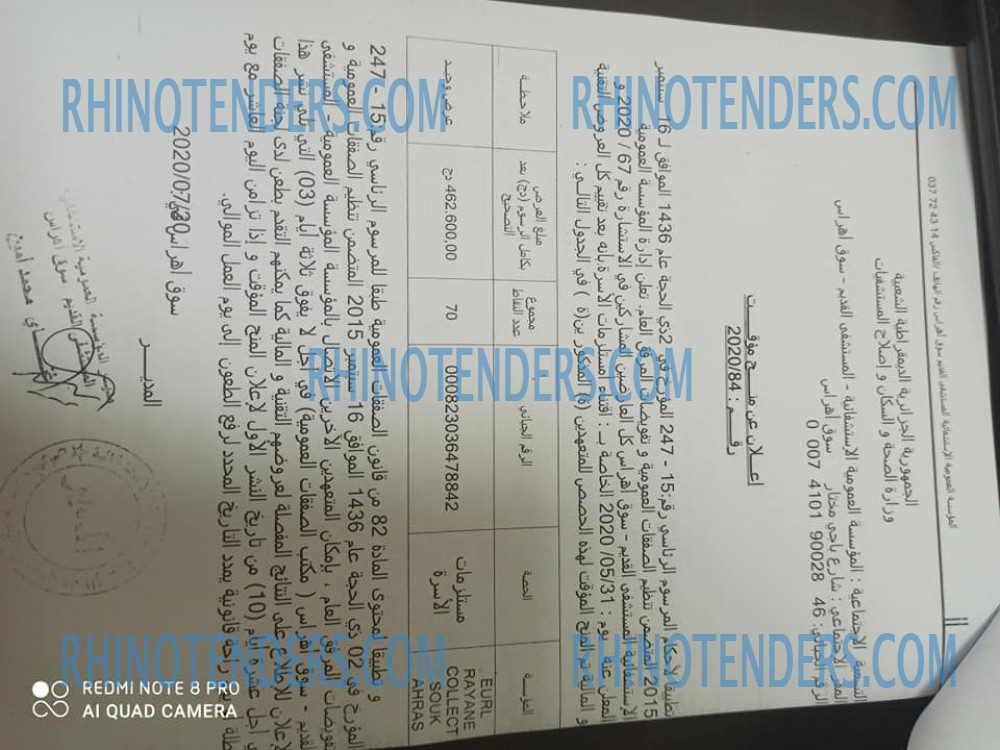 المؤسسة العمومية الاستشفائية المستشفى القديم سوق اهراس رقم الهاتف الفاكس 14 43 72 037
الجمهورية الجزائرية الديمقراطية الشعبية
وزارة الصحة و السكان و إصلاح المستشفيات
التسمية الاجتماعية : المؤسسة العمومية الاستشفائية - المستشفى القديم - سوق أهراس
المقر الاجتماعي : شارع باجي مختار سوق أهراس
الرقم الجبائي: 46 90028 4101 007 0
إعــلان عن منــح مؤقــت
رقــم : 2020/84
تطبيقا لأحكام المرسوم الرئاسي رقم: 15 - 247 المؤرخ في 2 ذي الحجة عام 1436 الموافق لـ 16 سبتمبر
2015 المتضمن تنظيم الصفقات العمومية و تفويضات المرفق العام, تعلن إدارة المؤسسة العمومية
الاستشفائية المستشفى القديم - سوق أهراس كل العارضين المشاركين في الاستشارة رقم 67 / 2020 و
المعلن عنه يوم : 31/05/ 2020 الخاصة بـ : اقتناء مستلزمات الأسرة. بأنه بعد تقييم كل العروض التقنية
و المالية تم المنح المؤقت لهذه الحصص للمتعهدين (ة) المذكورين(ة ) في الجدول التالي :
المؤسسة | الحصة | الرقم الجبائي | مجموع عدد النقاط | مبلغ العرض بكامل الرسوم (دج) بعد التصحيح | ملاحظة
EURL RAYANE COLLECT SOUK AHRAS | مستلزمات الأسرة | 000823036478842 | 70 | 462.600,00 دج | عرض وحيد
و تطبيقا لمحتوى المادة 82 من قانون الصفقات العمومية طبقا للمرسوم الرئاسي رقم 15 - 247
المؤرخ في 02 ذي الحجة عام 1436 الموافق 16 سبتمبر 2015 المتضمن تنظيم الصفقات العمومية و
تفويضات المرفق العام ، بإمكان المتعهدين الآخرين الاتصال بالمؤسسة العمومية - المستشفى
القديم - سوق أهراس ( مكتب الصفقات العمومية) في أجل لا يفوق ثلاثة أيام (03) التي تلي نشر هذا
الإعلان للاطلاع على النتائج المفصلة لعروضهم التقنية و المالية كما يمكنهم التقدم بطعن لدى لجنة الصفقات
في أجل عشرة أيام (10) من تاريخ النشر الأول لإعلان المنح المؤقت و إذا تزامن اليوم العاشر مع يوم
عطلة قانونية يمدد التاريخ المحدد لرفع الطعون إلى يوم العمل الموالي.
سوق أهراس في 2020/07/30
المديــر
RHINOTENDERS.COM
RHINOTENDERS.COM
RHINOTENDERS.COM
RHINOTENDERS.COM
RHINOTENDERS.COM
REDMI NOTE 8 PRO
AI QUAD CAMERA